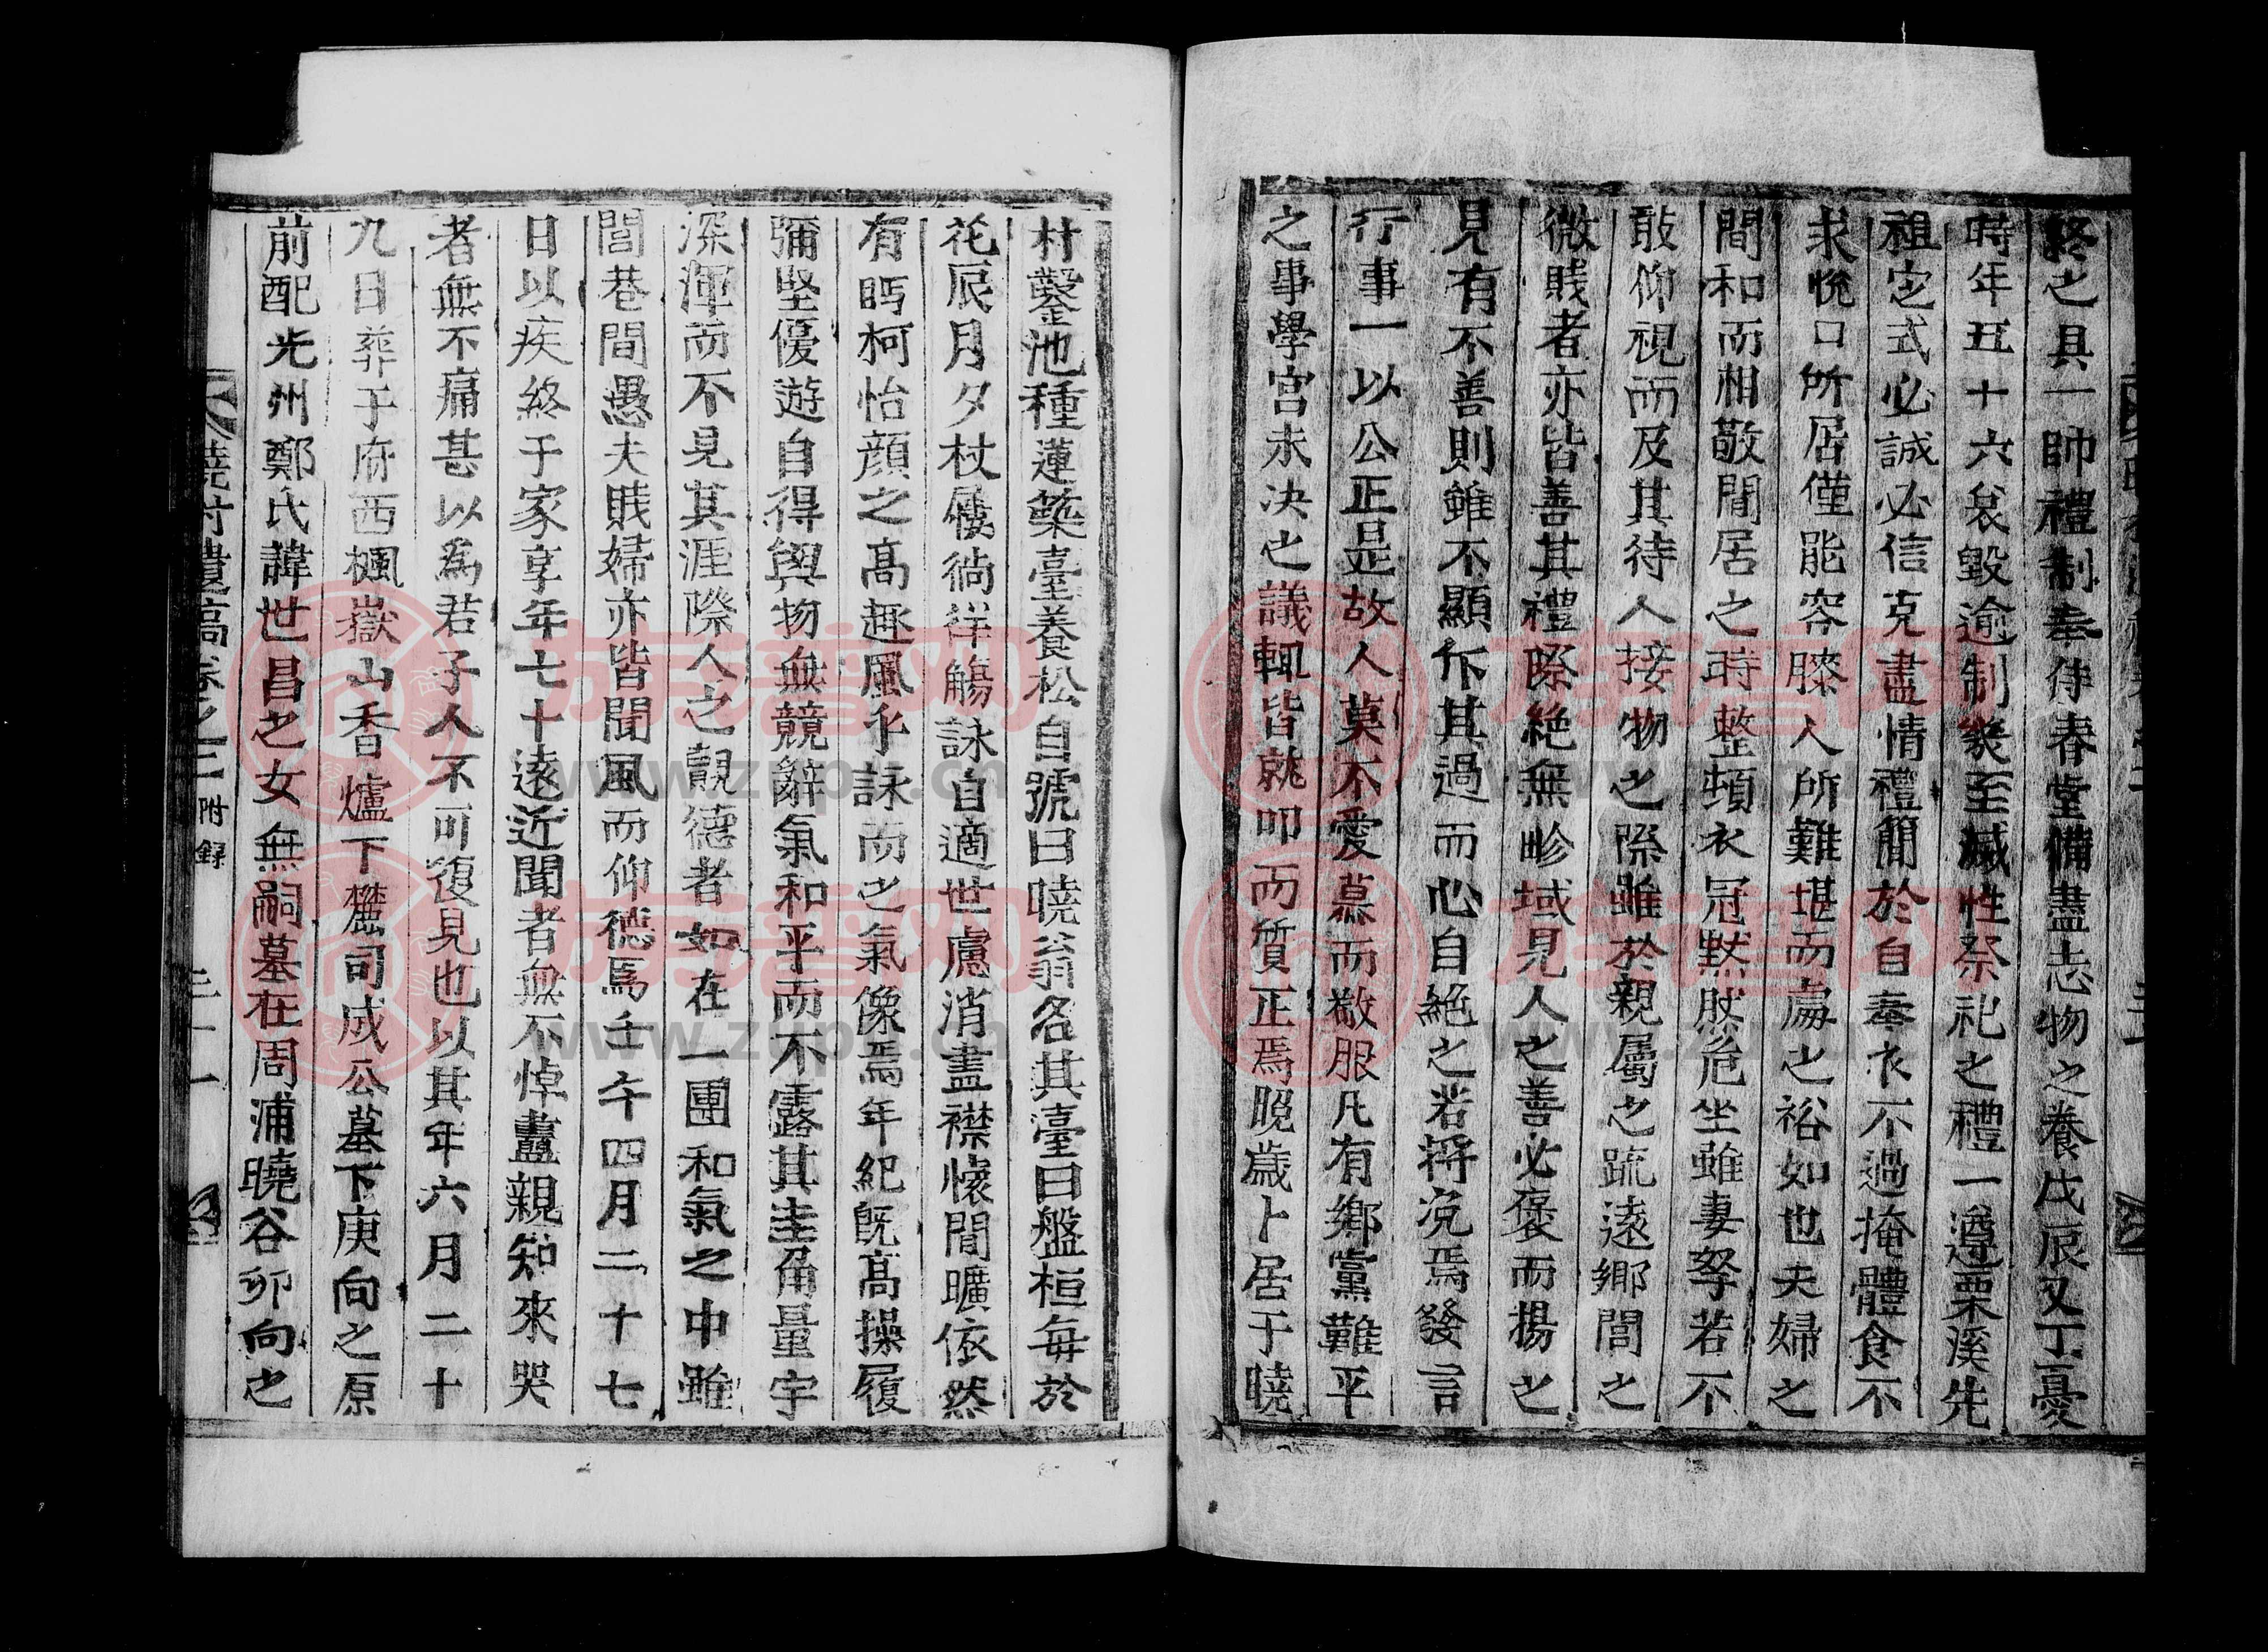 終之具一帥禮制奉侍春堂備盡志物之養戊辰又丁憂
時年五十六哀毀逾制幾至滅性祭祀之禮一遵栗溪先
祖定式必誠必信克盡情禮簡於自奉衣不過掩體食不
求悅口所居僅能容膝人所難堪而處之裕如也夫婦之
間和而相敬閒居之時整頓衣冠默然危坐雖妻孥若不
敢仰視而及其待人接物之際雖於親屬之疏遠鄉閭之
微賤者亦皆善其禮際絶無畛域見人之善必褒而揚之
見有不善則雖不顯斥其過而心自絶之若將浼焉發言
行事一以公正是故人莫不愛慕而敬服凡有鄉黨難平
之事學宮未決之議輒皆就叩而質正焉晚歲卜居于曉
村鑿池種蓮築臺養松自號曰曉翁名其臺曰盤桓每於
花辰月夕杖屨徜徉觴詠自適世慮消盡襟懷閒曠依然
有眄柯怡顔之高趣風乎詠而之氣像焉年紀旣高操履
彌堅優遊自得與物無競辭氣和平而不露其圭角量宇
深渾而不見其涯際人之覿德者如在一團和氣之中雖
閭巷間愚夫賤婦亦皆聞風而仰德焉壬午四月二十七
日以疾終于家享年七十遠近聞者無不悼盡親知來哭
者無不痛甚以爲若子人不可復見也以其年六月二十
九日葬于府西楓嶽山香爐下麓司成公墓下庚向之原
前配光州鄭氏諱世昌之女無嗣墓在周浦曉谷卯向之
曉村遺稿卷之三 附錄 三十一
族谱网
www.zupu.cn
族谱网
www.zupu.cn
族谱网
www.zupu.cn
族谱网
www.zupu.cn